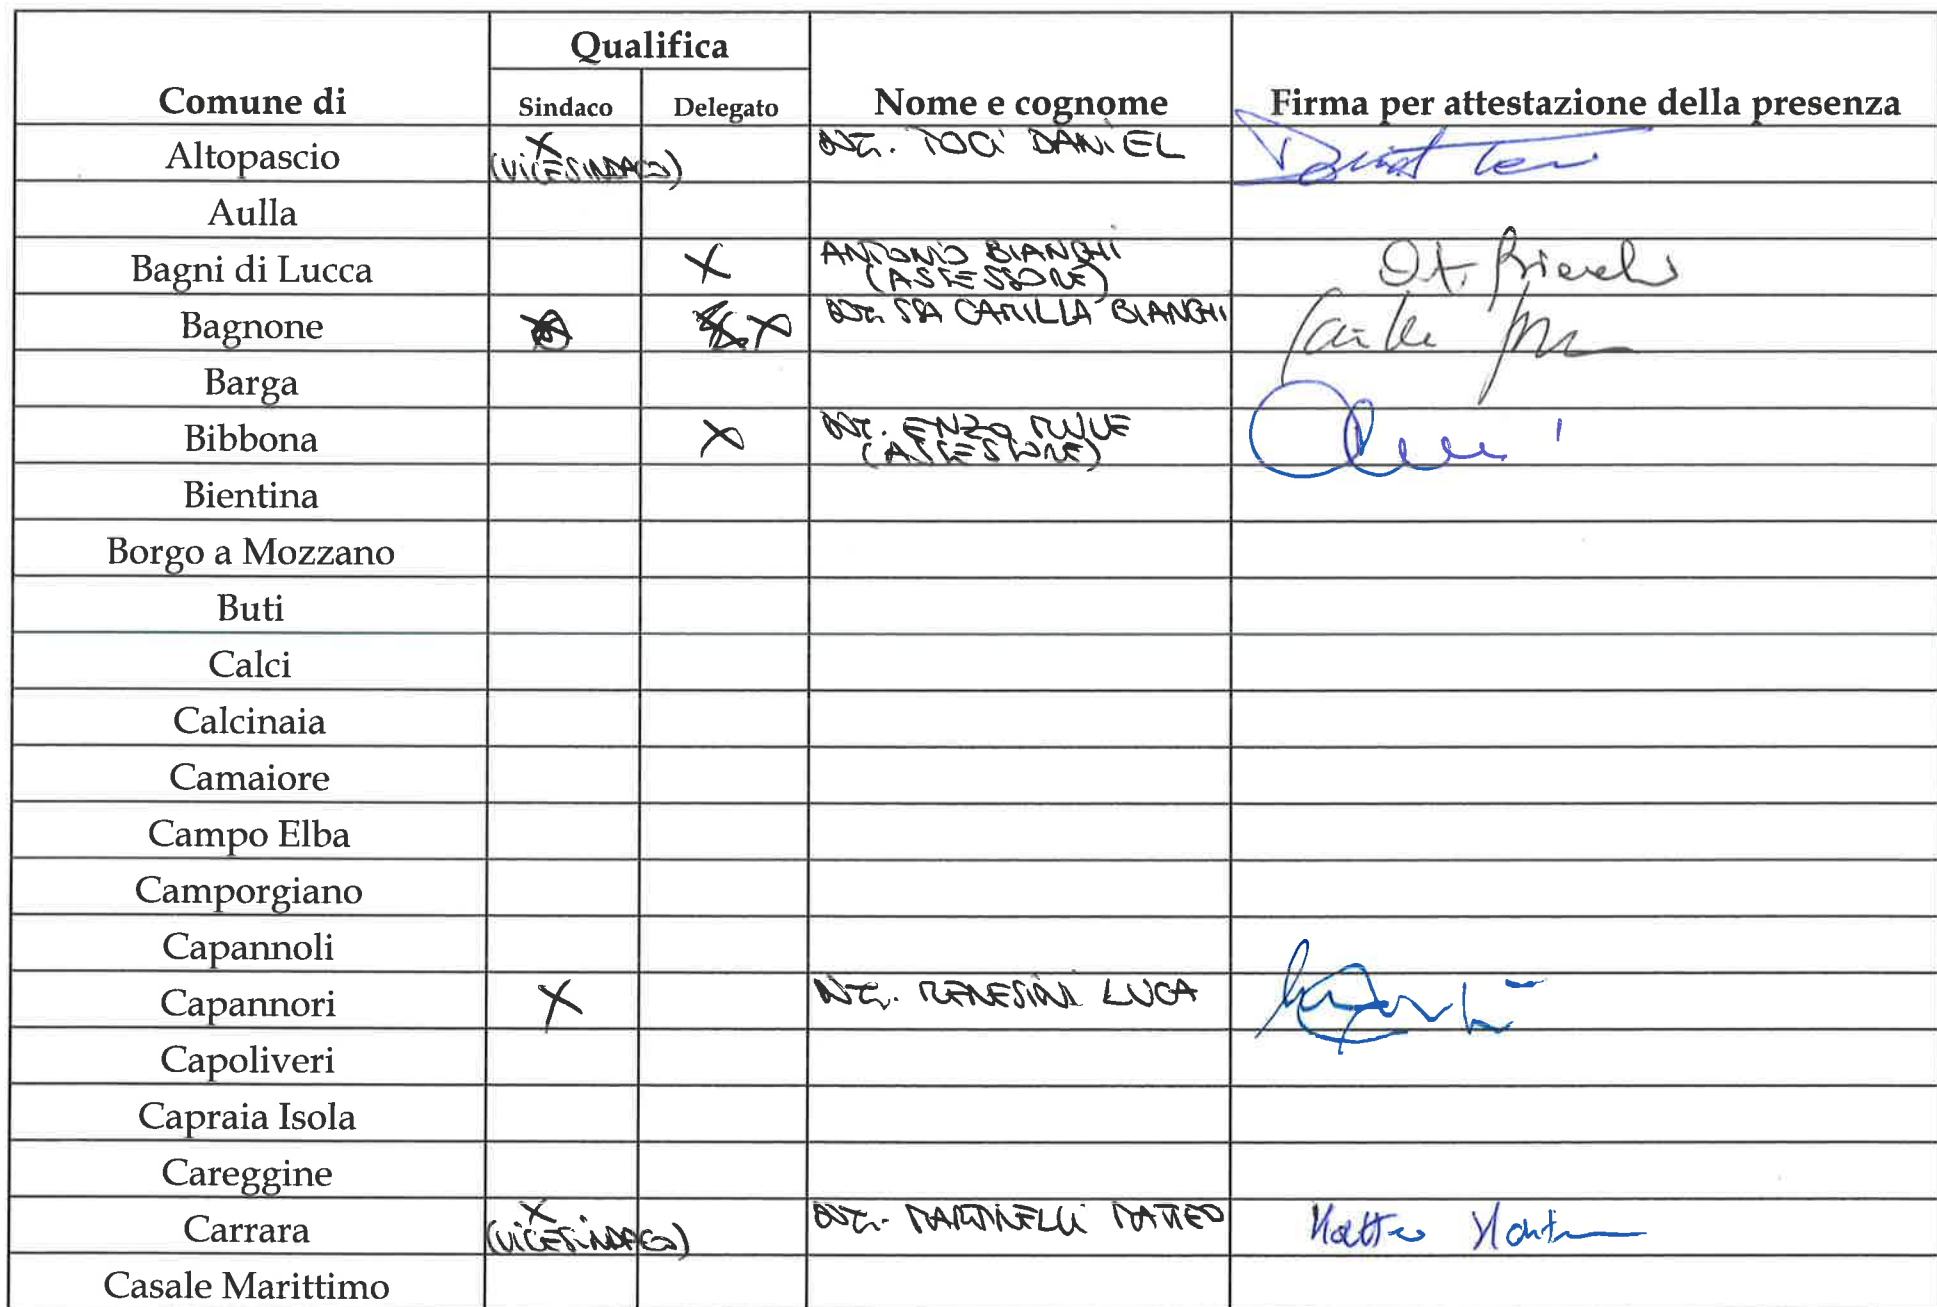 Qualifica
Comune di Sindaco Delegato Nome e cognome Firma per attestazione della presenza
Altopascio X DOTT. TOCI DANIEL
(VICESINDACO)
Aulla
Bagni di Lucca X ANTONIO BIANCHI
(ASSESSORE)
Bagnone X BIANCHI
Barga
Bibbona X DOTT. ENZO MULÈ
(ASSESSORE)
Bientina
Borgo a Mozzano
Buti
Calci
Calcinaia
Camaiore
Campo Elba
Camporgiano
Capannoli
Capannori X DOTT. MENESINI LUCA
Capoliveri
Capraia Isola
Careggine
Carrara X DOTT. MARTINELLI MATTEO Matteo
(VICESINDACO)
Casale Marittimo